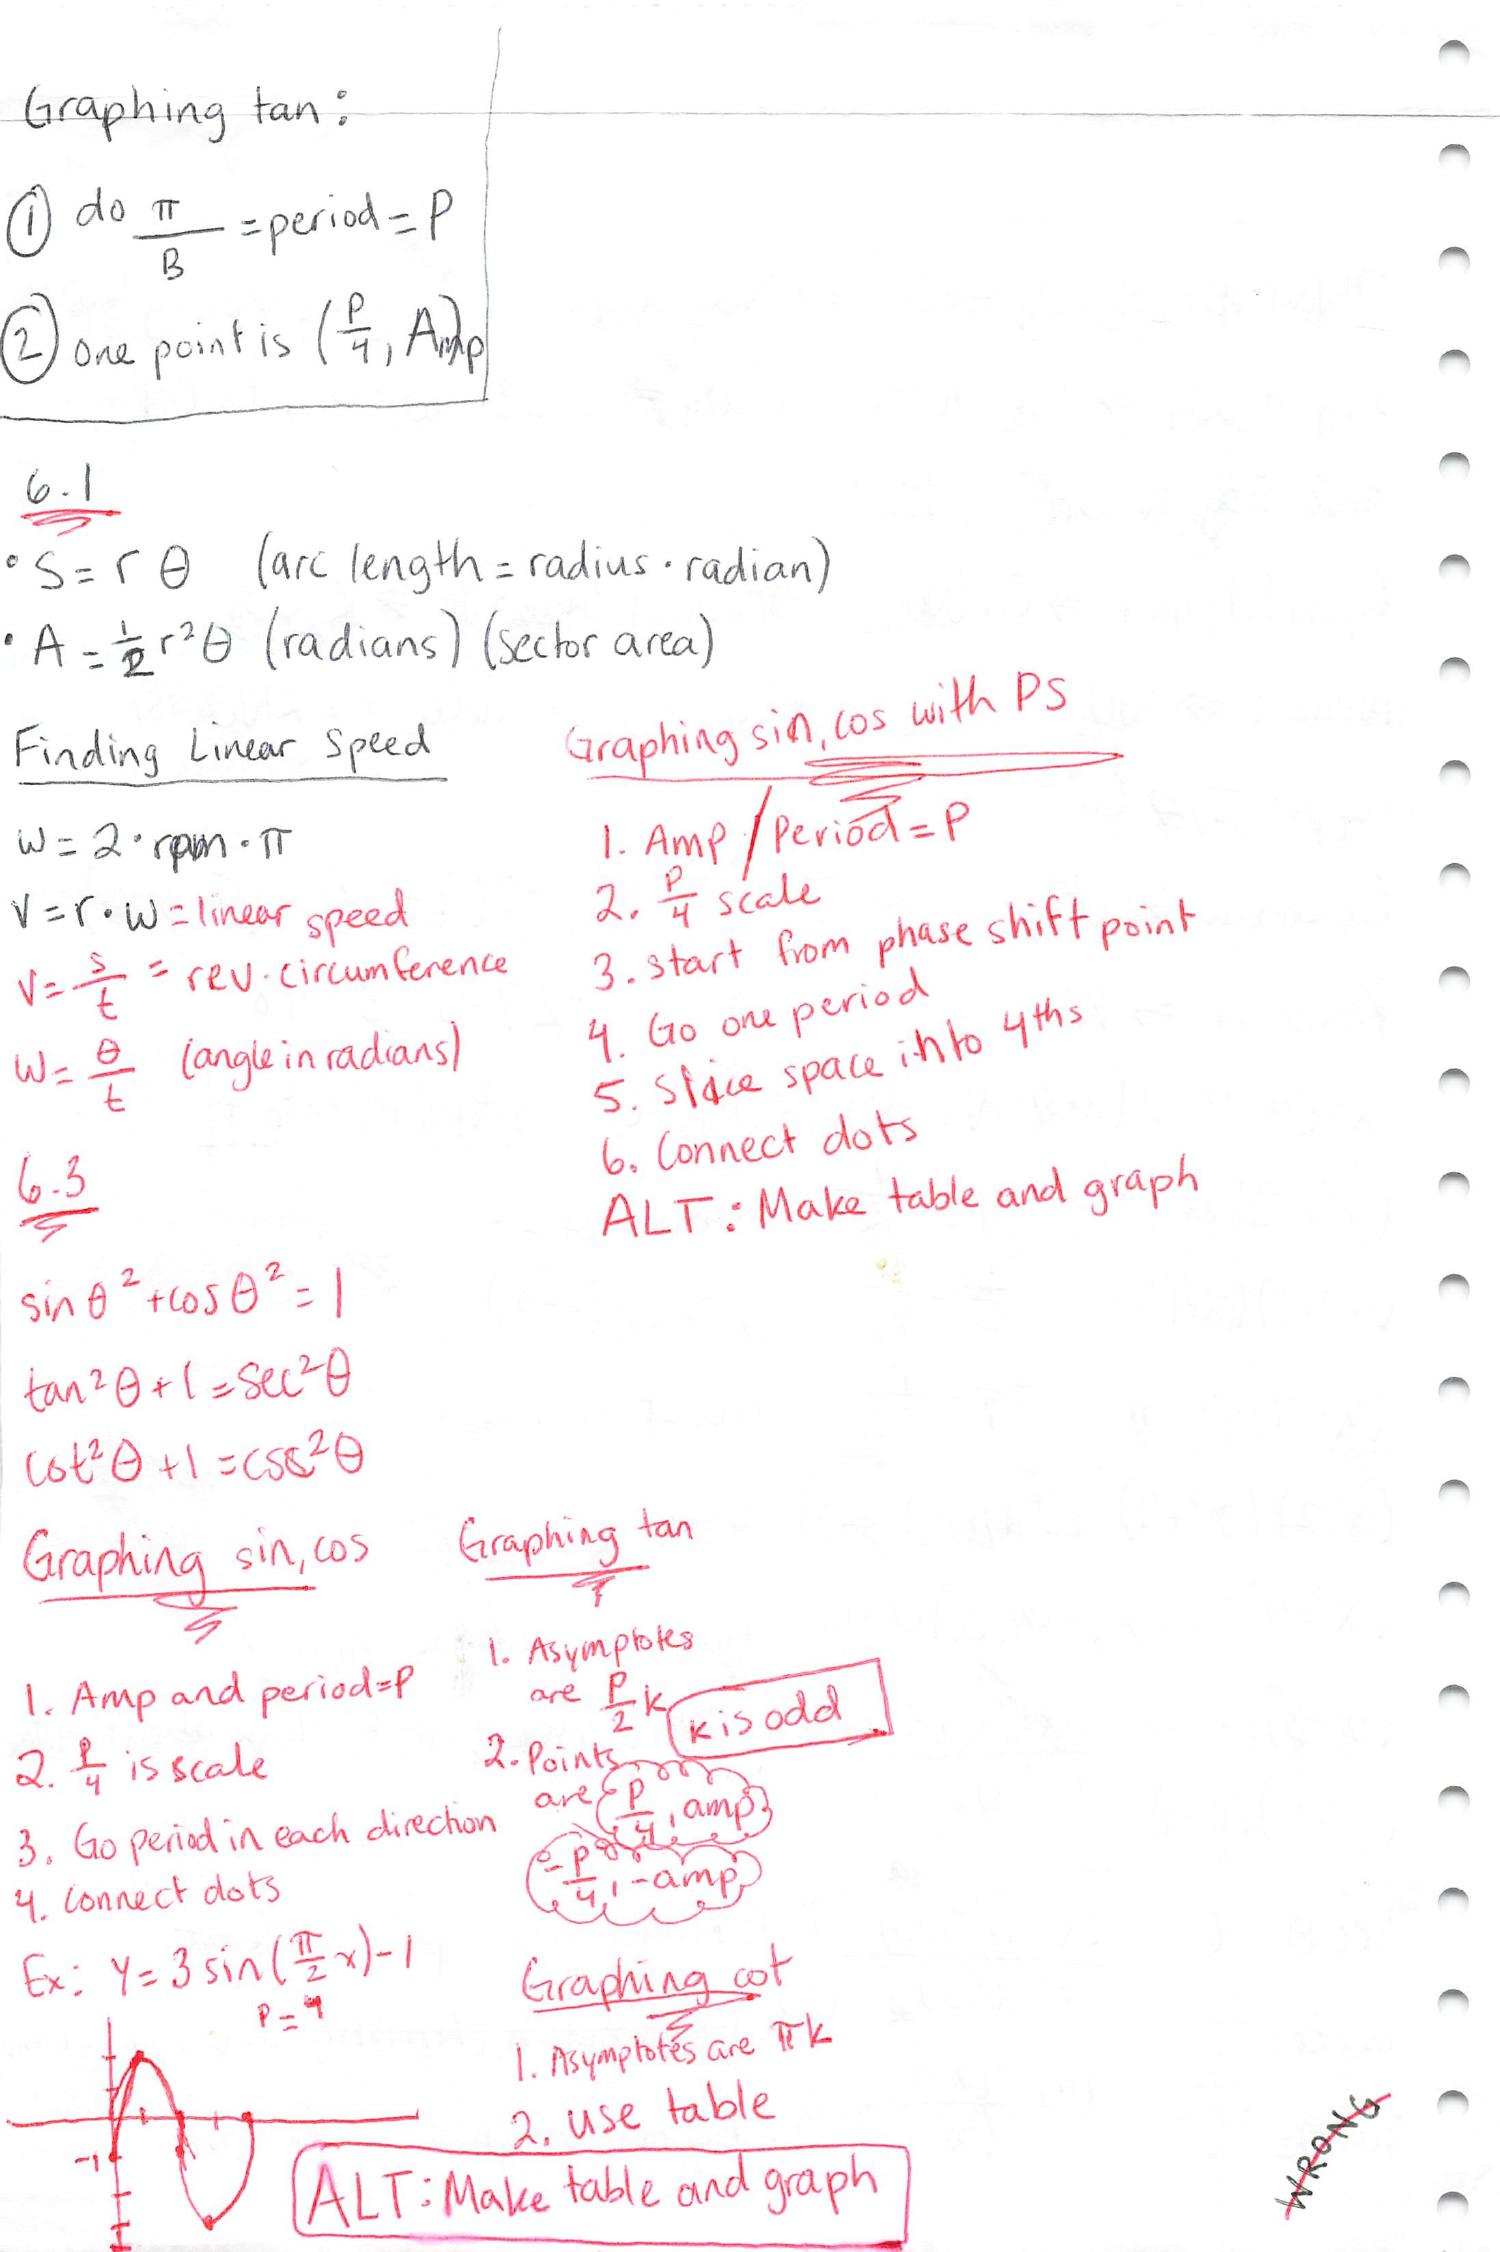 Graphing tan:
① do π/B = period = P
② one point is (P/4, Amp)
6.1
• S = r θ (arc length = radius · radian)
• A = 1/2 r²θ (radians) (sector area)
Finding Linear Speed
W = 2 · rpm · π
V = r · W = linear speed
V = s/t = rev · circumference
W = θ/t (angle in radians)
Graphing sin, cos with PS
1. Amp / Period = P
2. P/4 scale
3. Start from phase shift point
4. Go one period
5. Slice space into 4ths
6. Connect dots
ALT: Make table and graph
6.3
sin θ² + cos θ² = 1
tan²θ + 1 = sec²θ
cot²θ + 1 = csc²θ
Graphing sin, cos
1. Amp and period = P
2. P/4 is scale
3. Go period in each direction
4. Connect dots
Ex: Y = 3 sin(π/2 x) - 1
P = 4
-1
Graphing tan
1. Asymptotes
are P/2 k
k is odd
2. Points
are (P/4, amp)
(-P/4, -amp)
Graphing cot
1. Asymptotes are πk
2. use table
ALT: Make table and graph
WRONG